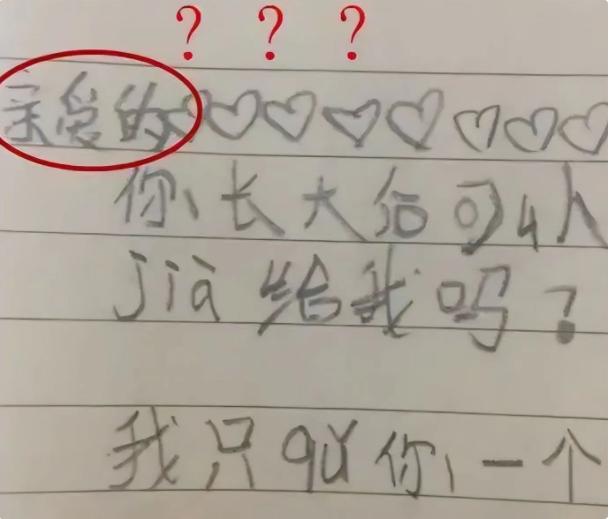 ? ? ?
亲爱的♡♡♡♡♡♡♡
你长大后可以
jià给我吗？
我只qǔ你一个